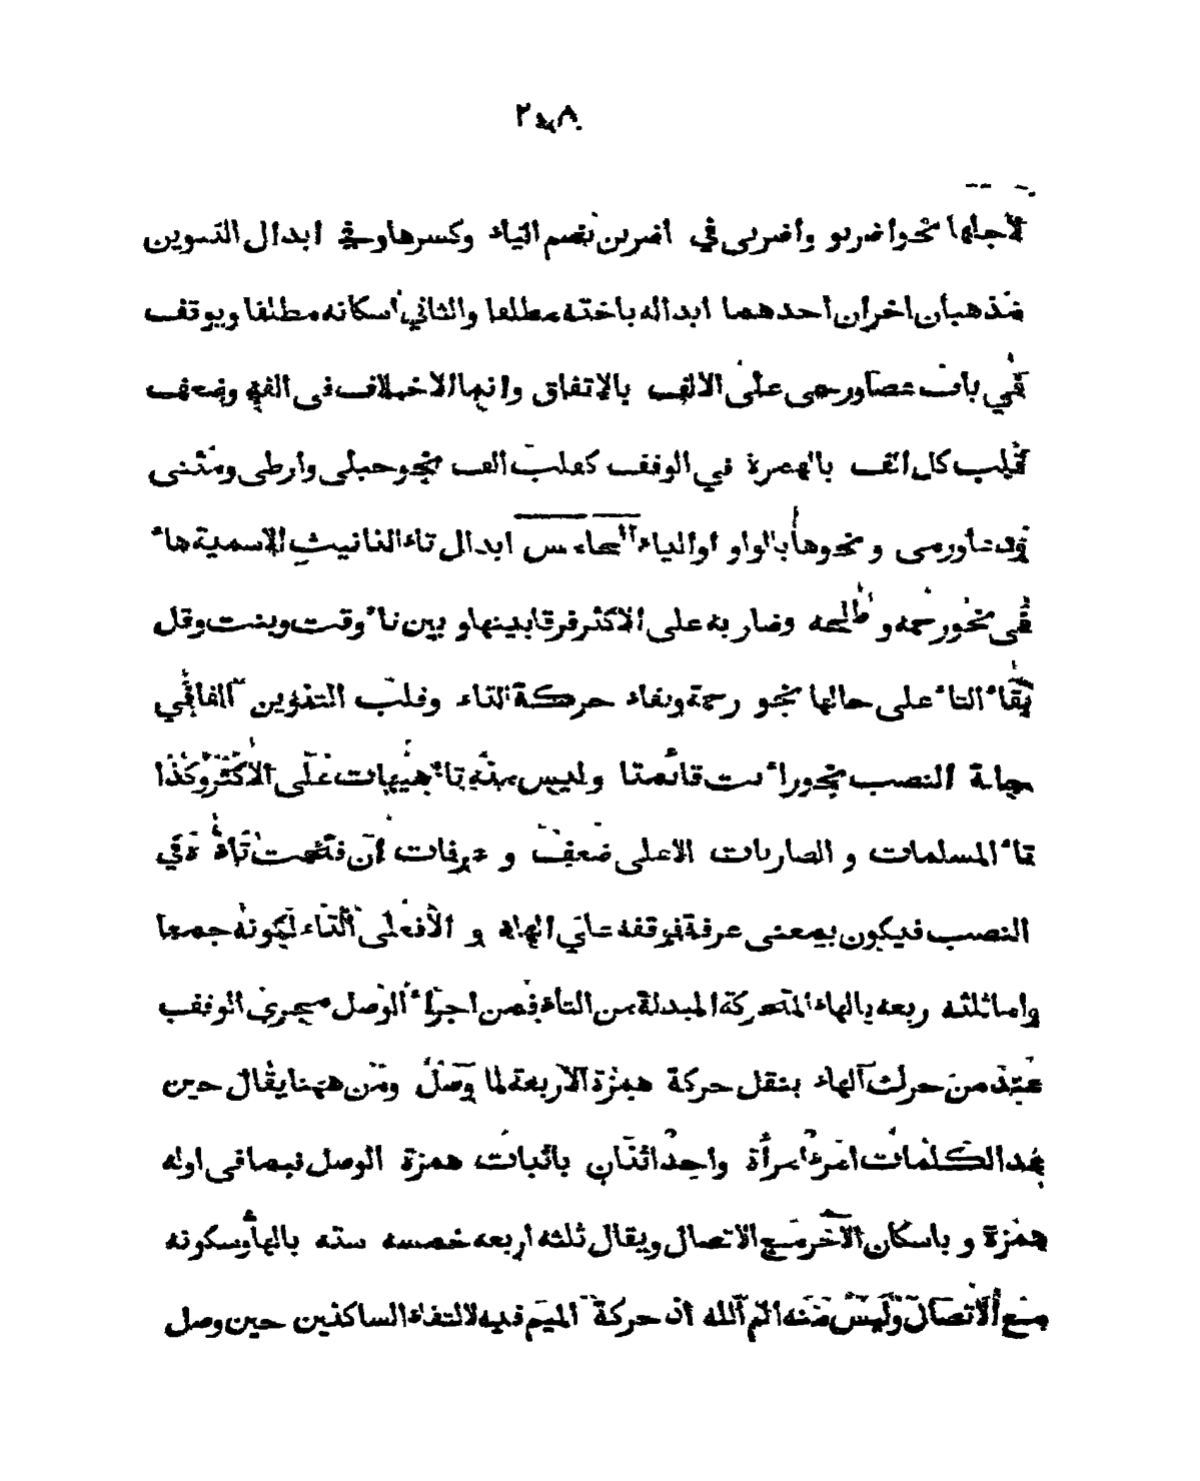 ٢٥٨
لاجلها نحو اضربو وأضربى في اضربن بضم الباء وكسرها وفي ابدال التنوين
مذهبان اخران احدهما ابداله باخته مطلقا والثاني اسكانه مطلقا ويوقف
في باب عصا ورحى على الالف بالاتفاق وانما الاختلاف فى الفه وضعف
قلب كل الف بالهمزة في الوقف كقلب الف نحو حبلى وأرطى ومثنى
ودعا ورمى ونحوها بالواو او الياء الخامس ابدال تاء التانيث الاسمية هاء
فى نحو رحمه و طلحه وضاربه على الاكثر فرقا بينها و بين تاء وقت وبنت وقل
بقاء التاء على حالها نحو رحمة وبقاء حركة التاء وقلب التنوين الفا في
حالة النصب نحو رائت قائمتا وليس منه تاء هيهات على الاكثر وكذا
تاء المسلمات و الضاربات الاعلى ضعف و عرفات ان فتحت تاءه في
النصب فيكون بمعنى عرفة فوقفه على الهاء و الافعلى التاء لكونه جمعا
واما ثلثه ربعه بالهاء المتحركة المبدلة من التاء فمن اجراء الوصل مجرى الوقف
عند من حرك الهاء بنقل حركة همزة الاربعة لما وصل ومن ههنا يقال حين
بعد الكلمات امرء امرأة واحد اثنان باثبات همزة الوصل فيما فى اوله
همزة و باسكان الآخر مع الاتصال ويقال ثلثه اربعه خمسه سته بالهاء وسكونه
مع الاتصال وليس منه الم الله اذ حركة الميم فيه لالتقاء الساكنين حين وصل